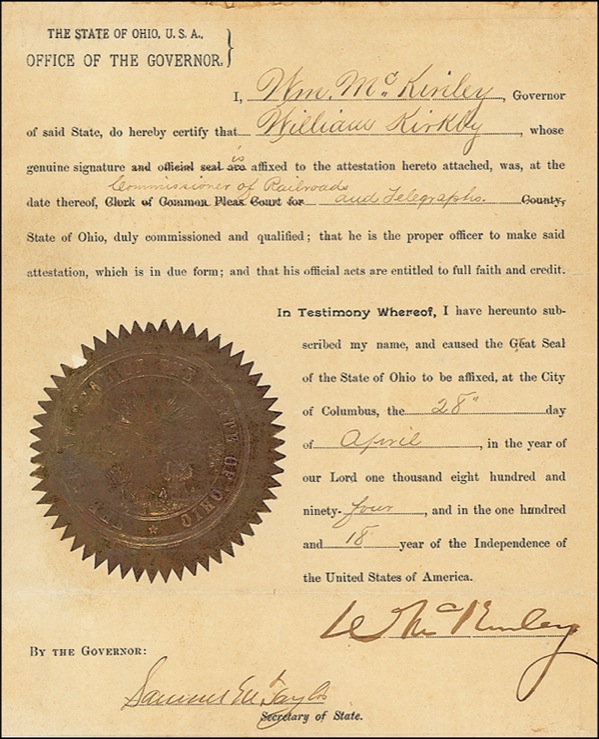 THE STATE OF OHIO, U. S. A.,
OFFICE OF THE GOVERNOR.
I, Wm. McKinley, Governor
of said State, do hereby certify that William Kirkby, whose
genuine signature and official seal are is affixed to the attestation hereto attached, was, at the
Commissioner of Railroads
date thereof, Clerk of Common Pleas Court for and Telegraphs. County,
State of Ohio, duly commissioned and qualified; that he is the proper officer to make said
attestation, which is in due form; and that his official acts are entitled to full faith and credit.
In Testimony Whereof, I have hereunto sub-
scribed my name, and caused the Great Seal
of the State of Ohio to be affixed, at the City
of Columbus, the 28" day
of April, in the year of
our Lord one thousand eight hundred and
ninety-four, and in the one hundred
and 18 year of the Independence of
the United States of America.
W McKinley
BY THE GOVERNOR:
Samuel M Taylor
Secretary of State.
OF THE STATE OF OHIO